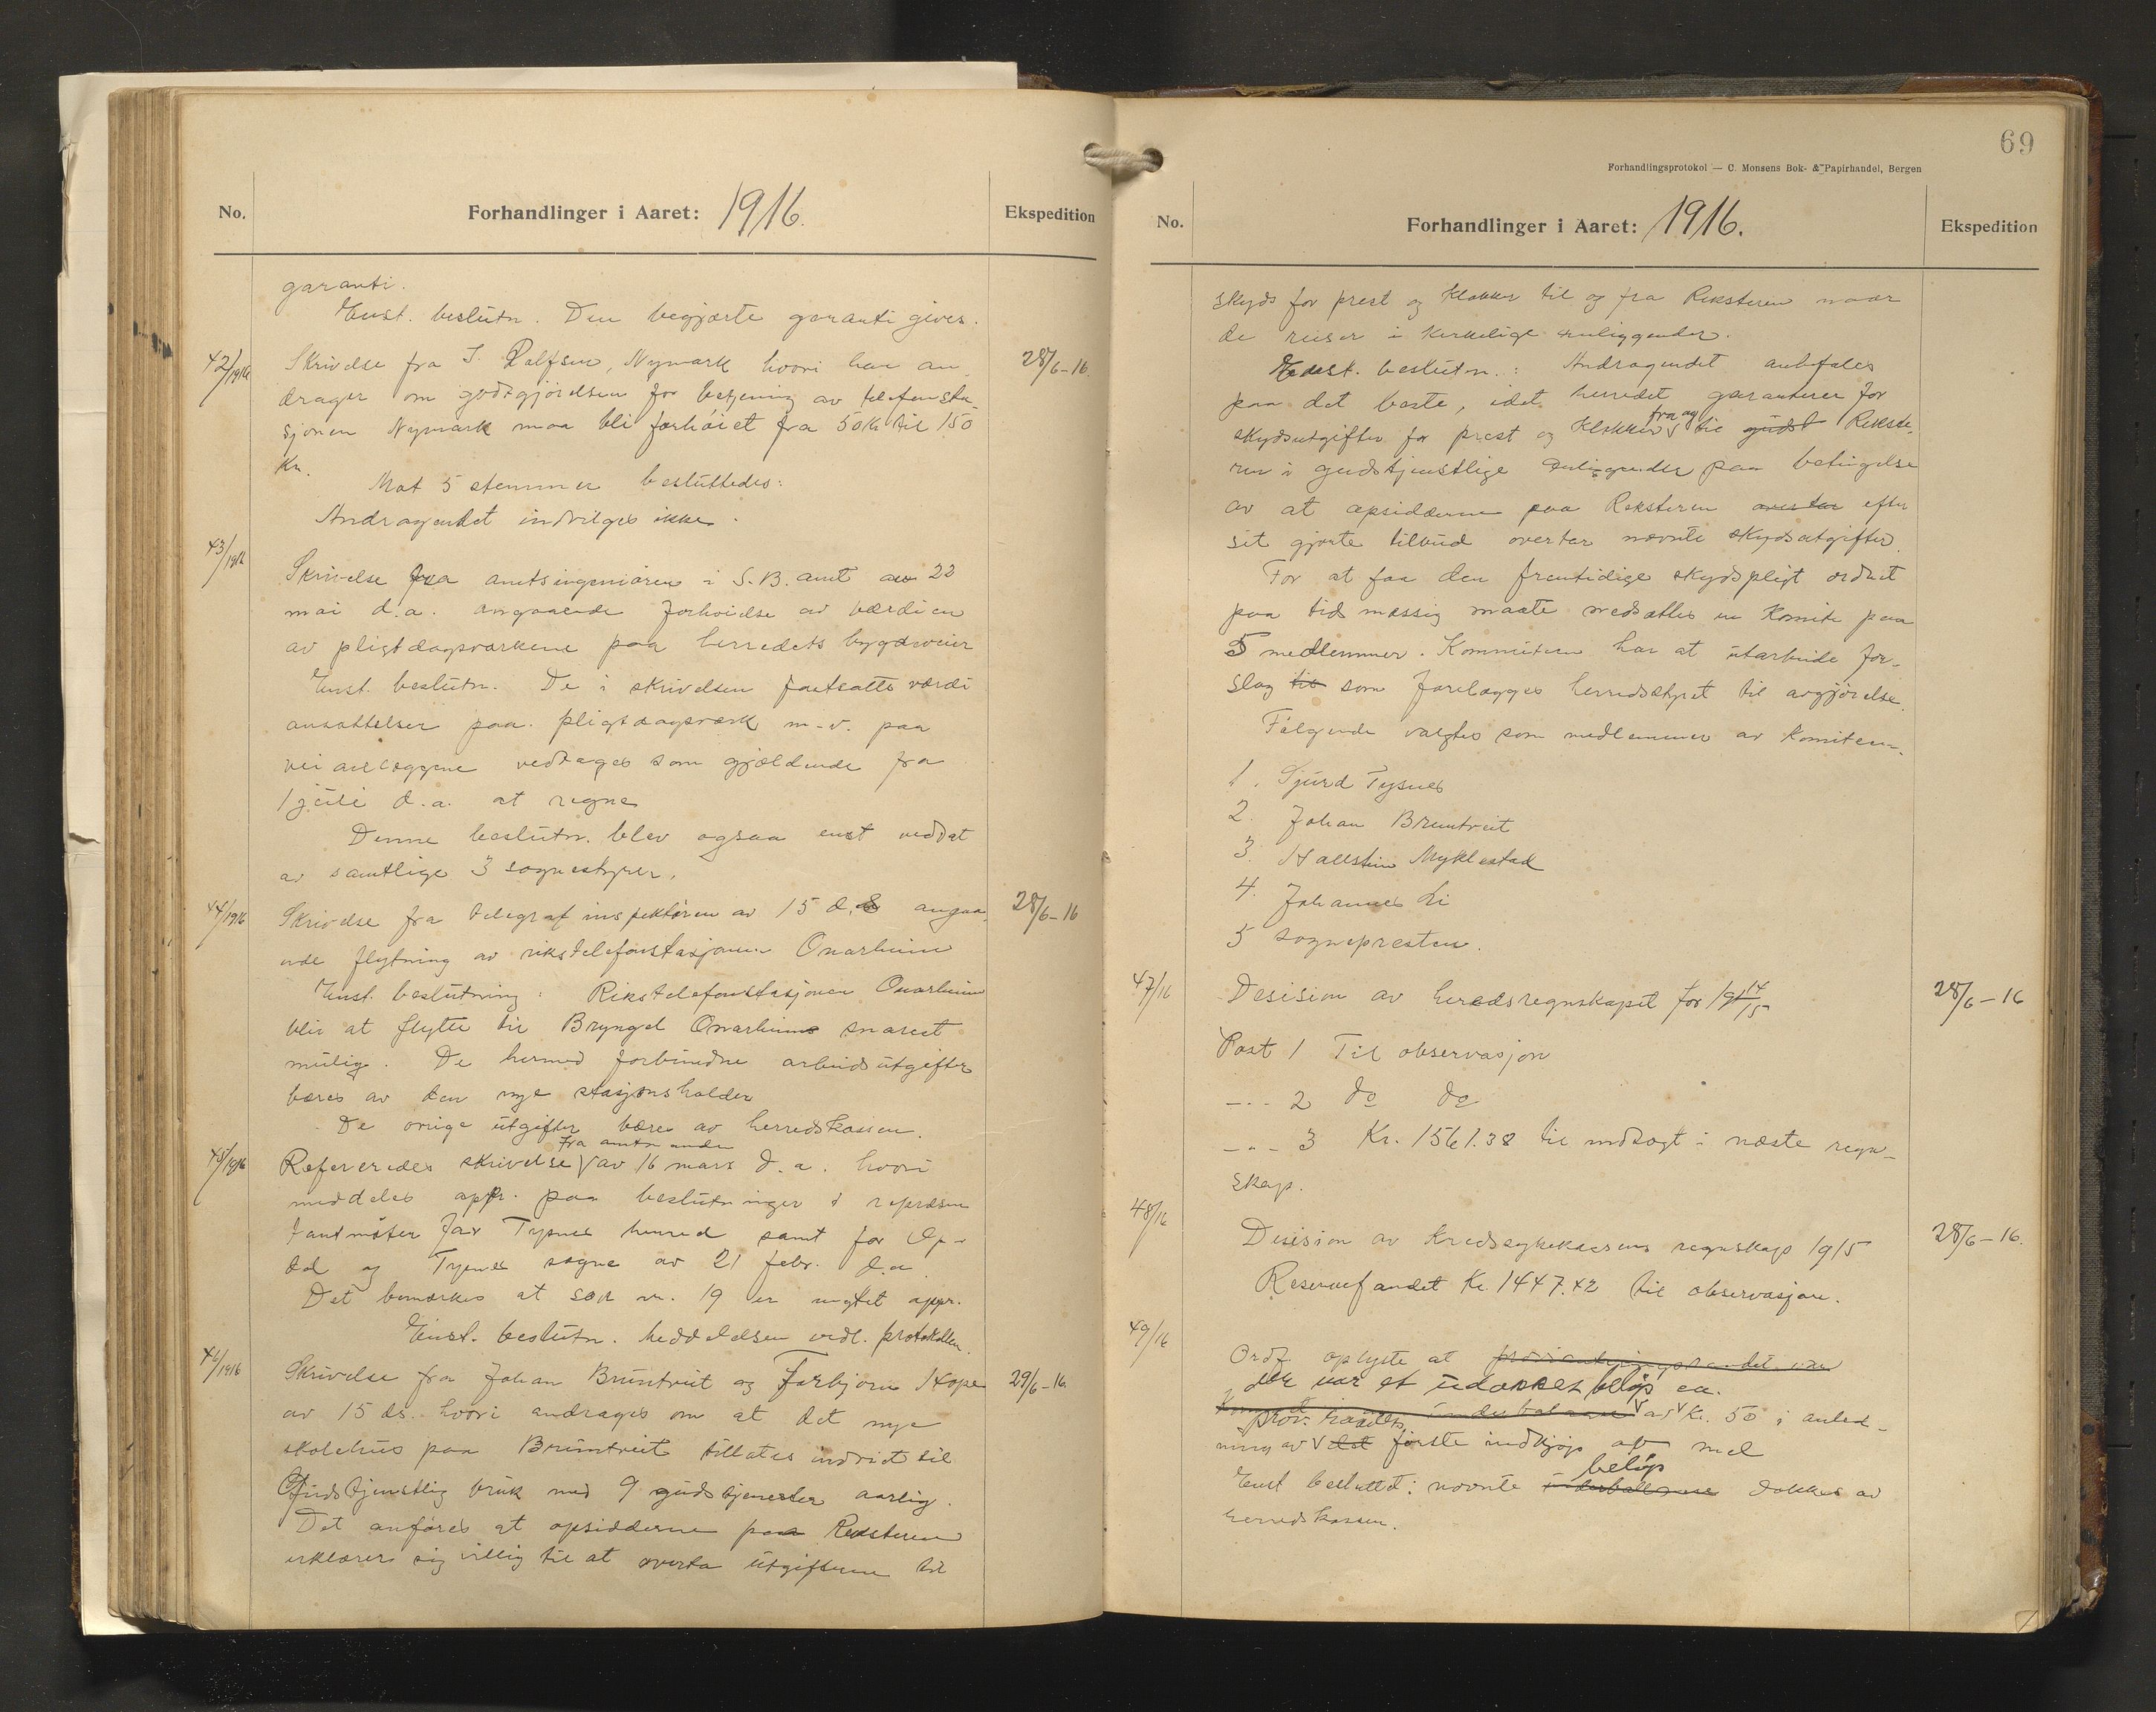 No.
Forhandlinger i Aaret: 1916.
Ekspedition
garanti.
Enst. beslutn. Den begjærte garanti gives.
42/1916
Skrivelse fra J. Rolfsen, Nymark hvori han an-
28/6-16.
drager om godtgjörelsen for betjening av telefonsta-
sjonen Nymark maa bli forhöiet fra 50 Kr til 150
Kr.
Mot 5 stemmer besluttedes:
Andragendet indvilges ikke.
43/1916
Skrivelse fra amtsingeniören i S.B. amt av 22
mai d.a. angaaende forhöielse av værdien
av pligtdagsværkene paa herredets bygdeveier
Enst. beslutn. De i skrivelsen fastsatte værdi
ansættelser paa pligtdagsværk m.v. paa
veianlæggene vedtages som gjældende fra
1 juli d.a. at regne
Denne beslutn. blev ogsaa enst vedtat
av samtlige 3 sognestyrer.
44/1916
Skrivelse fra telegrafinspektören av 15 d.s angaa-
28/6-16
ende flytning av rikstelefonstasjonen Onarheim
Enst. beslutning: Rikstelefonstasjonen Onarheim
blir at flytte til Bryngel Onarheim snarest
mulig. De hermed forbundne arbeidsutgifter
bæres av den nye stasjonsholder
De övrige utgifter bæres av herredskassen.
45/1916
fra amtm
Refereredes skrivelse av 16 mars d.a. hvori
meddeles appr. paa beslutninger i repræsen
tantmöter for Tysnes herred samt for Op-
dal og Tysnes sogne av 21 febr. d.a.
Det bemærkes at sak nr. 19 er negtet appr.
Enst. beslutn. Meddelelsen vedl. protokollen.
46/1916
Skrivelse fra Johan Bruntveit og Torbjörn Hope
29/6-16.
av 15 ds. hvori andrages om at det nye
skolehus paa Bruntveit tillates indviet til
Gudstjenstlig bruk med 9 gudstjenester aarlig.
Det anföres at opsidderne paa Reksteren
erklærer sig villig til at overta utgifterne til
69
Forhandlingsprotokol — C. Monsens Bok- & Papirhandel, Bergen
No.
Forhandlinger i Aaret: 1916.
Ekspedition
skyds for prest og klokker til og fra Reksteren naar
de reiser i kirkelige anliggender.
Enst. beslutn.: Andragendet anbefales
paa det beste, idet herredet garanterer for
fra og
skydsutgifter for prest og klokker til gudst Rekste-
ren i gudstjenstlige anliggender paa betingelse
av at opsidderne paa Reksteren overtar efter
sit gjorte tilbud overtar nævnte skydsutgifter.
For at faa den fremtidige skydspligt ordnet
paa tidsmæssig maate nedsættes en Komite paa
5 medlemmer. Kommiteen har at utarbeide for-
slag til som forelægges herredsstyret til avgjörelse.
Fölgende valgtes som medlemmer av Komiteen.
1. Sjurd Tysnes
2. Johan Bruntveit
3. Hallstein Myklestad
4. Johannes Li
5 sognepresten.
47/16
Desision av herredsregnskapet for 1914/15
28/6-16
Post 1 Til observasjon
-"- 2 do do
-"- 3 Kr. 1561.38 til indtægt i næste regn-
skap.
48/16
Desision av Kredssykekassens regnskap 1915
28/6-16.
Reservefondet Kr. 1447.42 til observasjon.
49/16
Ordf. oplyste at
der var et udækket belöp ca.
av Kr. 50 i anled-
prov. raadets
ning av det förste indkjöp af mel
belöp
Enst besluttet: nævnte underballanse dækkes av
herredskassen.